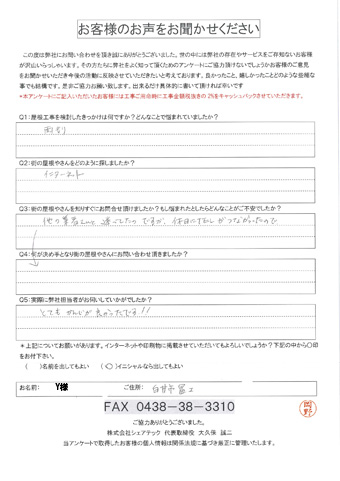 お客様のお声をお聞かせください
この度は弊社にお問い合わせを頂き誠にありがとうございました。世の中には弊社の存在やサービスをご存知ないお客様
が沢山いらっしゃいます。その方たちに弊社をよく知って頂くためのアンケートにご協力頂けないでしょうかお客様のご意見
をお聞かせいただき今後の活動に反映させていただきたいと考えております。良かったこと、嬉しかったことどのような些細な
事でも結構です。是非ご協力お願い致します。出来るだけ具体的に書いて頂ければ幸いです
*本アンケートにご記入いただいたお客様には工事ご出合時に工事金額税抜きの2%をキャッシュバックさせていただきます。
Q1:屋根工事を検討したきっかけは何ですか?どんなことで悩まれていましたか?
雨もり
Q2:街の屋根やさんをどのように探しましたか?
インターネット
Q3:街の屋根やさんを知りすぐにお問合せ頂けましたか?もし悩まれたとしたらどんなことがご不安でしたか?
他の業者さんと
休日に
つながったので
Q4:何が決め手となり街の屋根やさんにお問い合わせ頂きましたか?
Q5:実際に弊社担当者がお伺いしていかがでしたか?
とても かんじが良かったです!!
*上記についてお願いがあります。インターネットや印刷物に掲載させていただいてもよろしいでしょうか?下記の中から〇印
をお付下さい。
( )名前を出してもよい (〇)イニシャルなら出してもよい
お名前: Y様 ご住所:
FAX 0438-38-3310
ご協力ありがとうございました。
株式会社シェアテック 代表取締役 大久保 誠二
当アンケートで取得したお客様の個人情報は関係法規に基づき厳正に管理いたします。